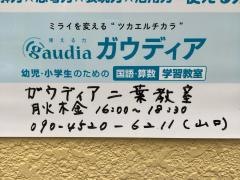 ミライを変える"ツカエルチカラ"
使える力
gaudia ガウディア
幼児・小学生のための 国語・算数 学習教室
ガウディア二葉教室
月火木金 16:00〜18:30
090-4520-6211(山口)